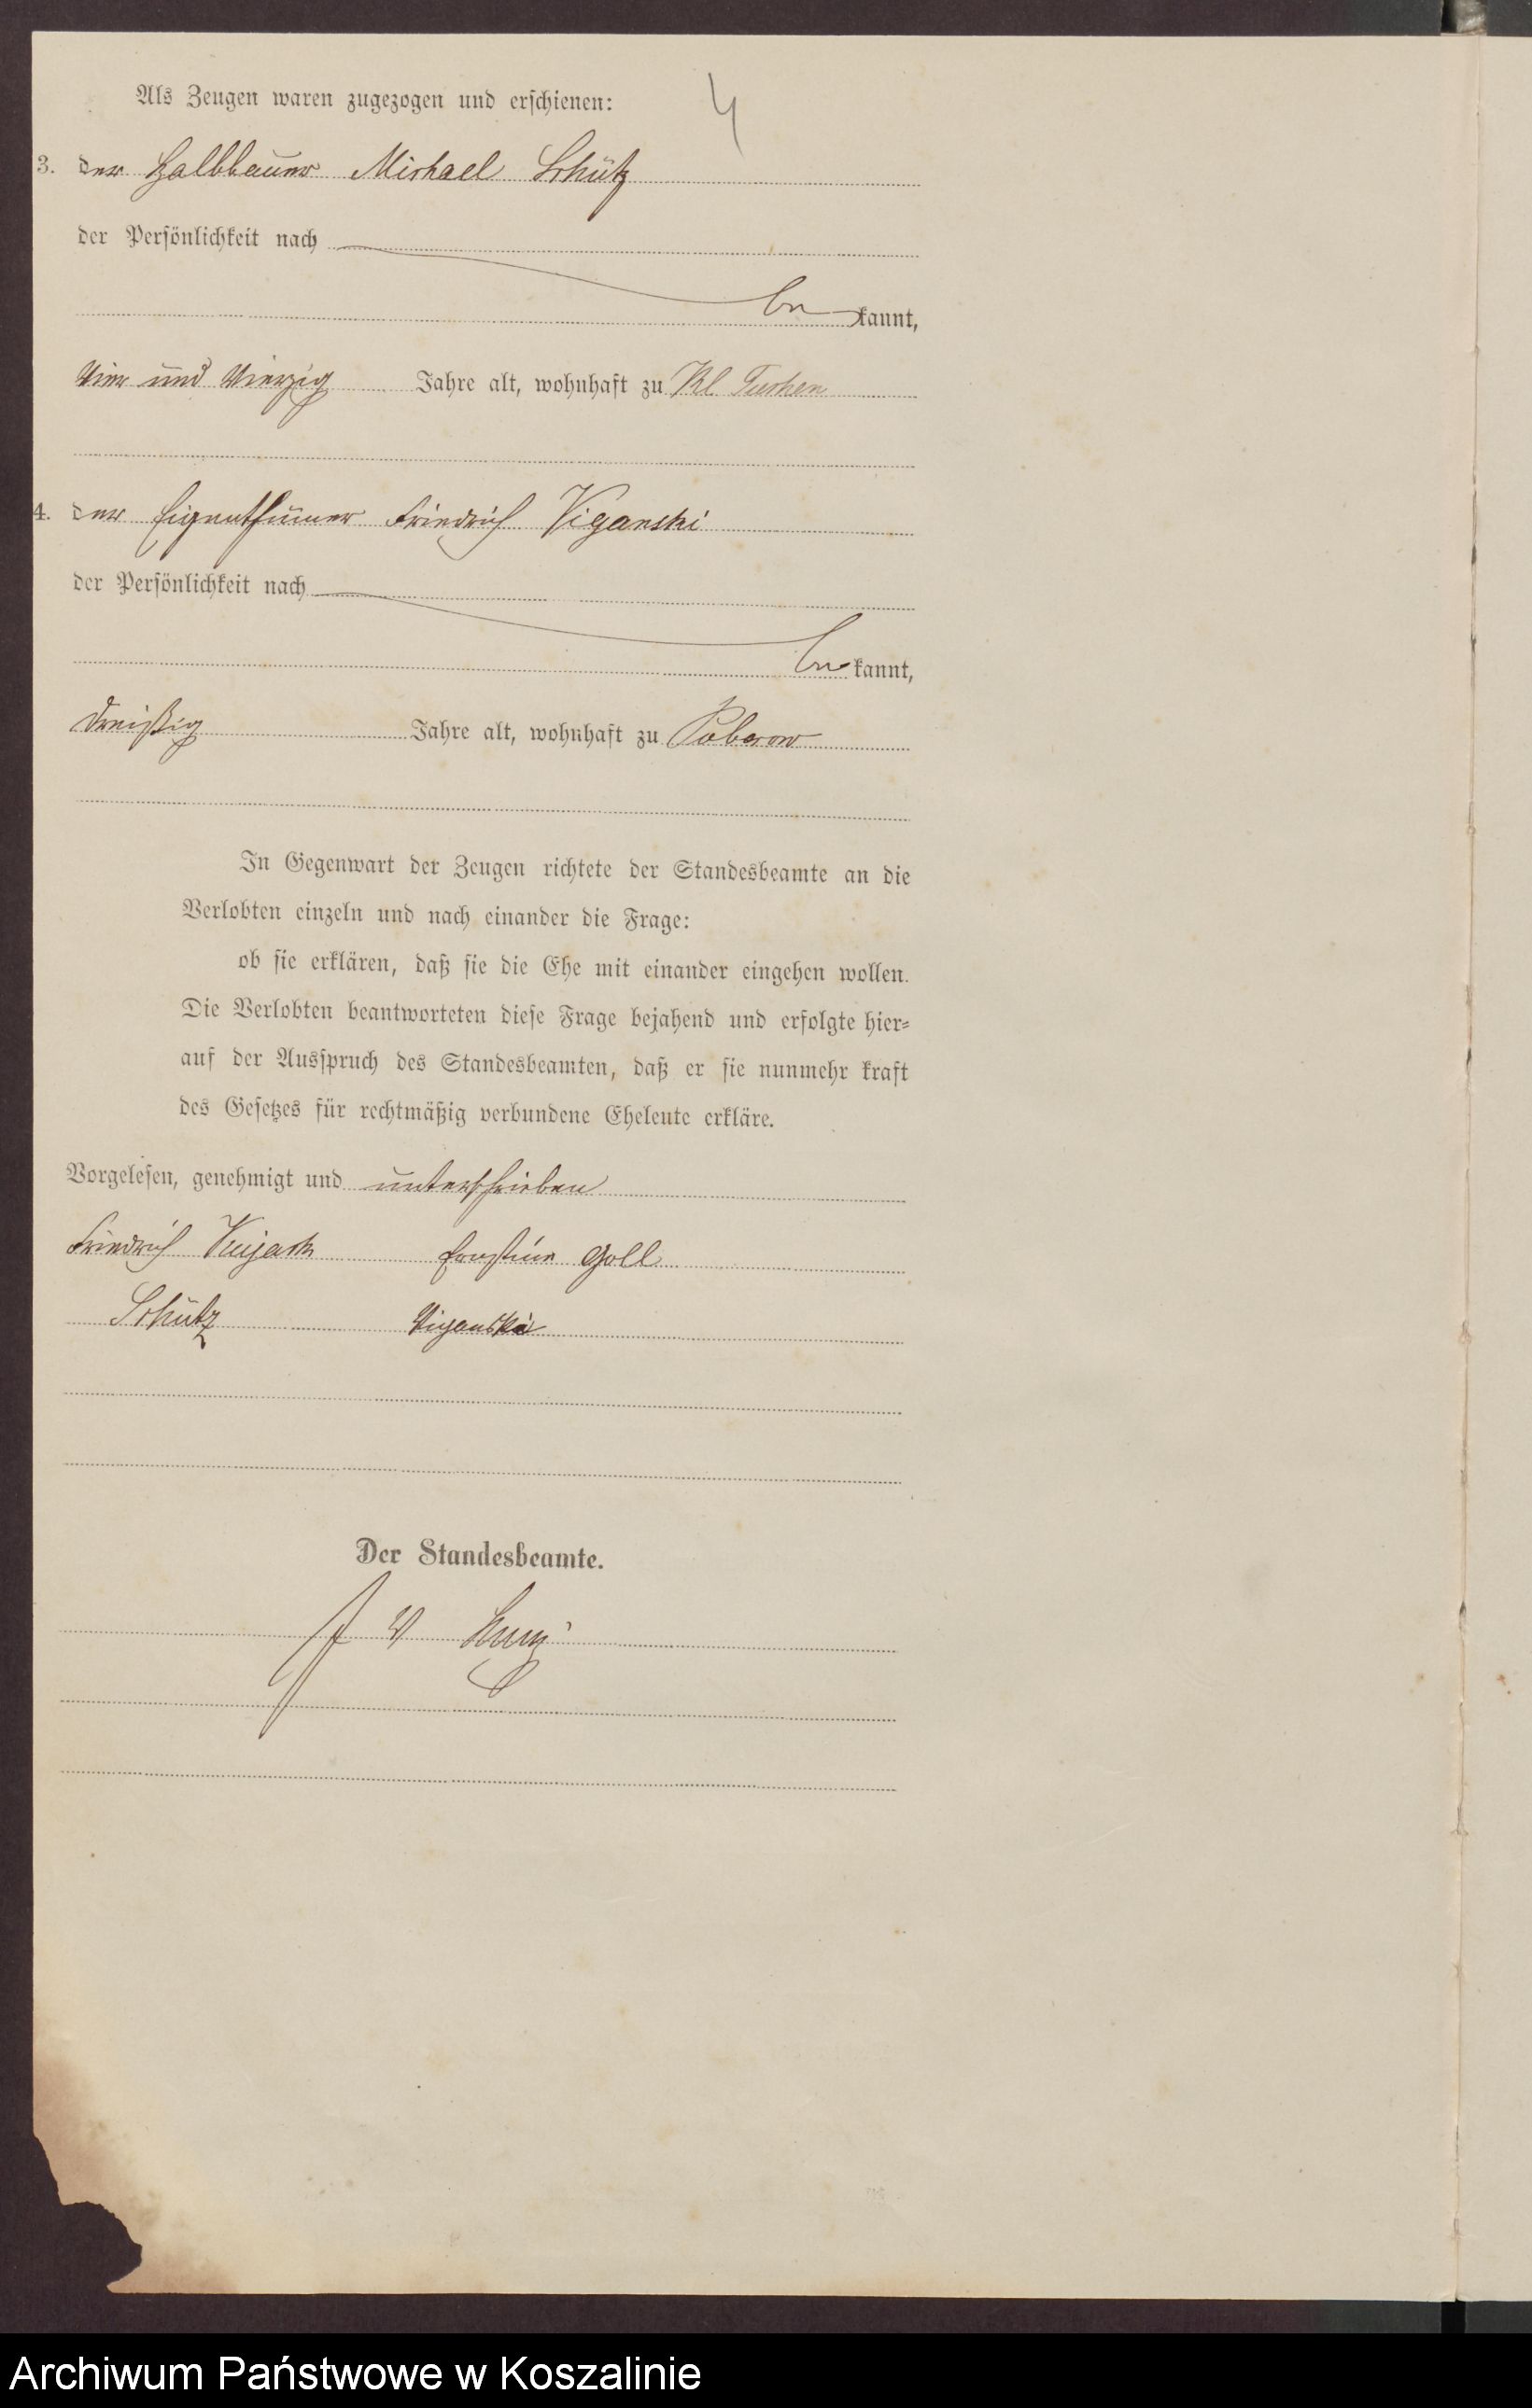 4
Als Zeugen waren zugezogen und erschienen:
3. der Halbbauer Michael Schütz
der Persönlichkeit nach
be kannt,
Vier und Vierzig Jahre alt, wohnhaft zu Kl. Tuchen
4. der Eigenthümer Friedrich Viganski
der Persönlichkeit nach
be kannt,
dreißig Jahre alt, wohnhaft zu Poberow
In Gegenwart der Zeugen richtete der Standesbeamte an die
Verlobten einzeln und nach einander die Frage:
ob sie erklären, daß sie die Ehe mit einander eingehen wollen.
Die Verlobten beantworteten diese Frage bejahend und erfolgte hier=
auf der Ausspruch des Standesbeamten, daß er sie nunmehr kraft
des Gesetzes für rechtmäßig verbundene Eheleute erkläre.
Vorgelesen, genehmigt und unterschrieben
Friedrich Kujach Ernstine Goll
Schütz Viganski
Der Standesbeamte.
Archiwum Państwowe w Koszalinie